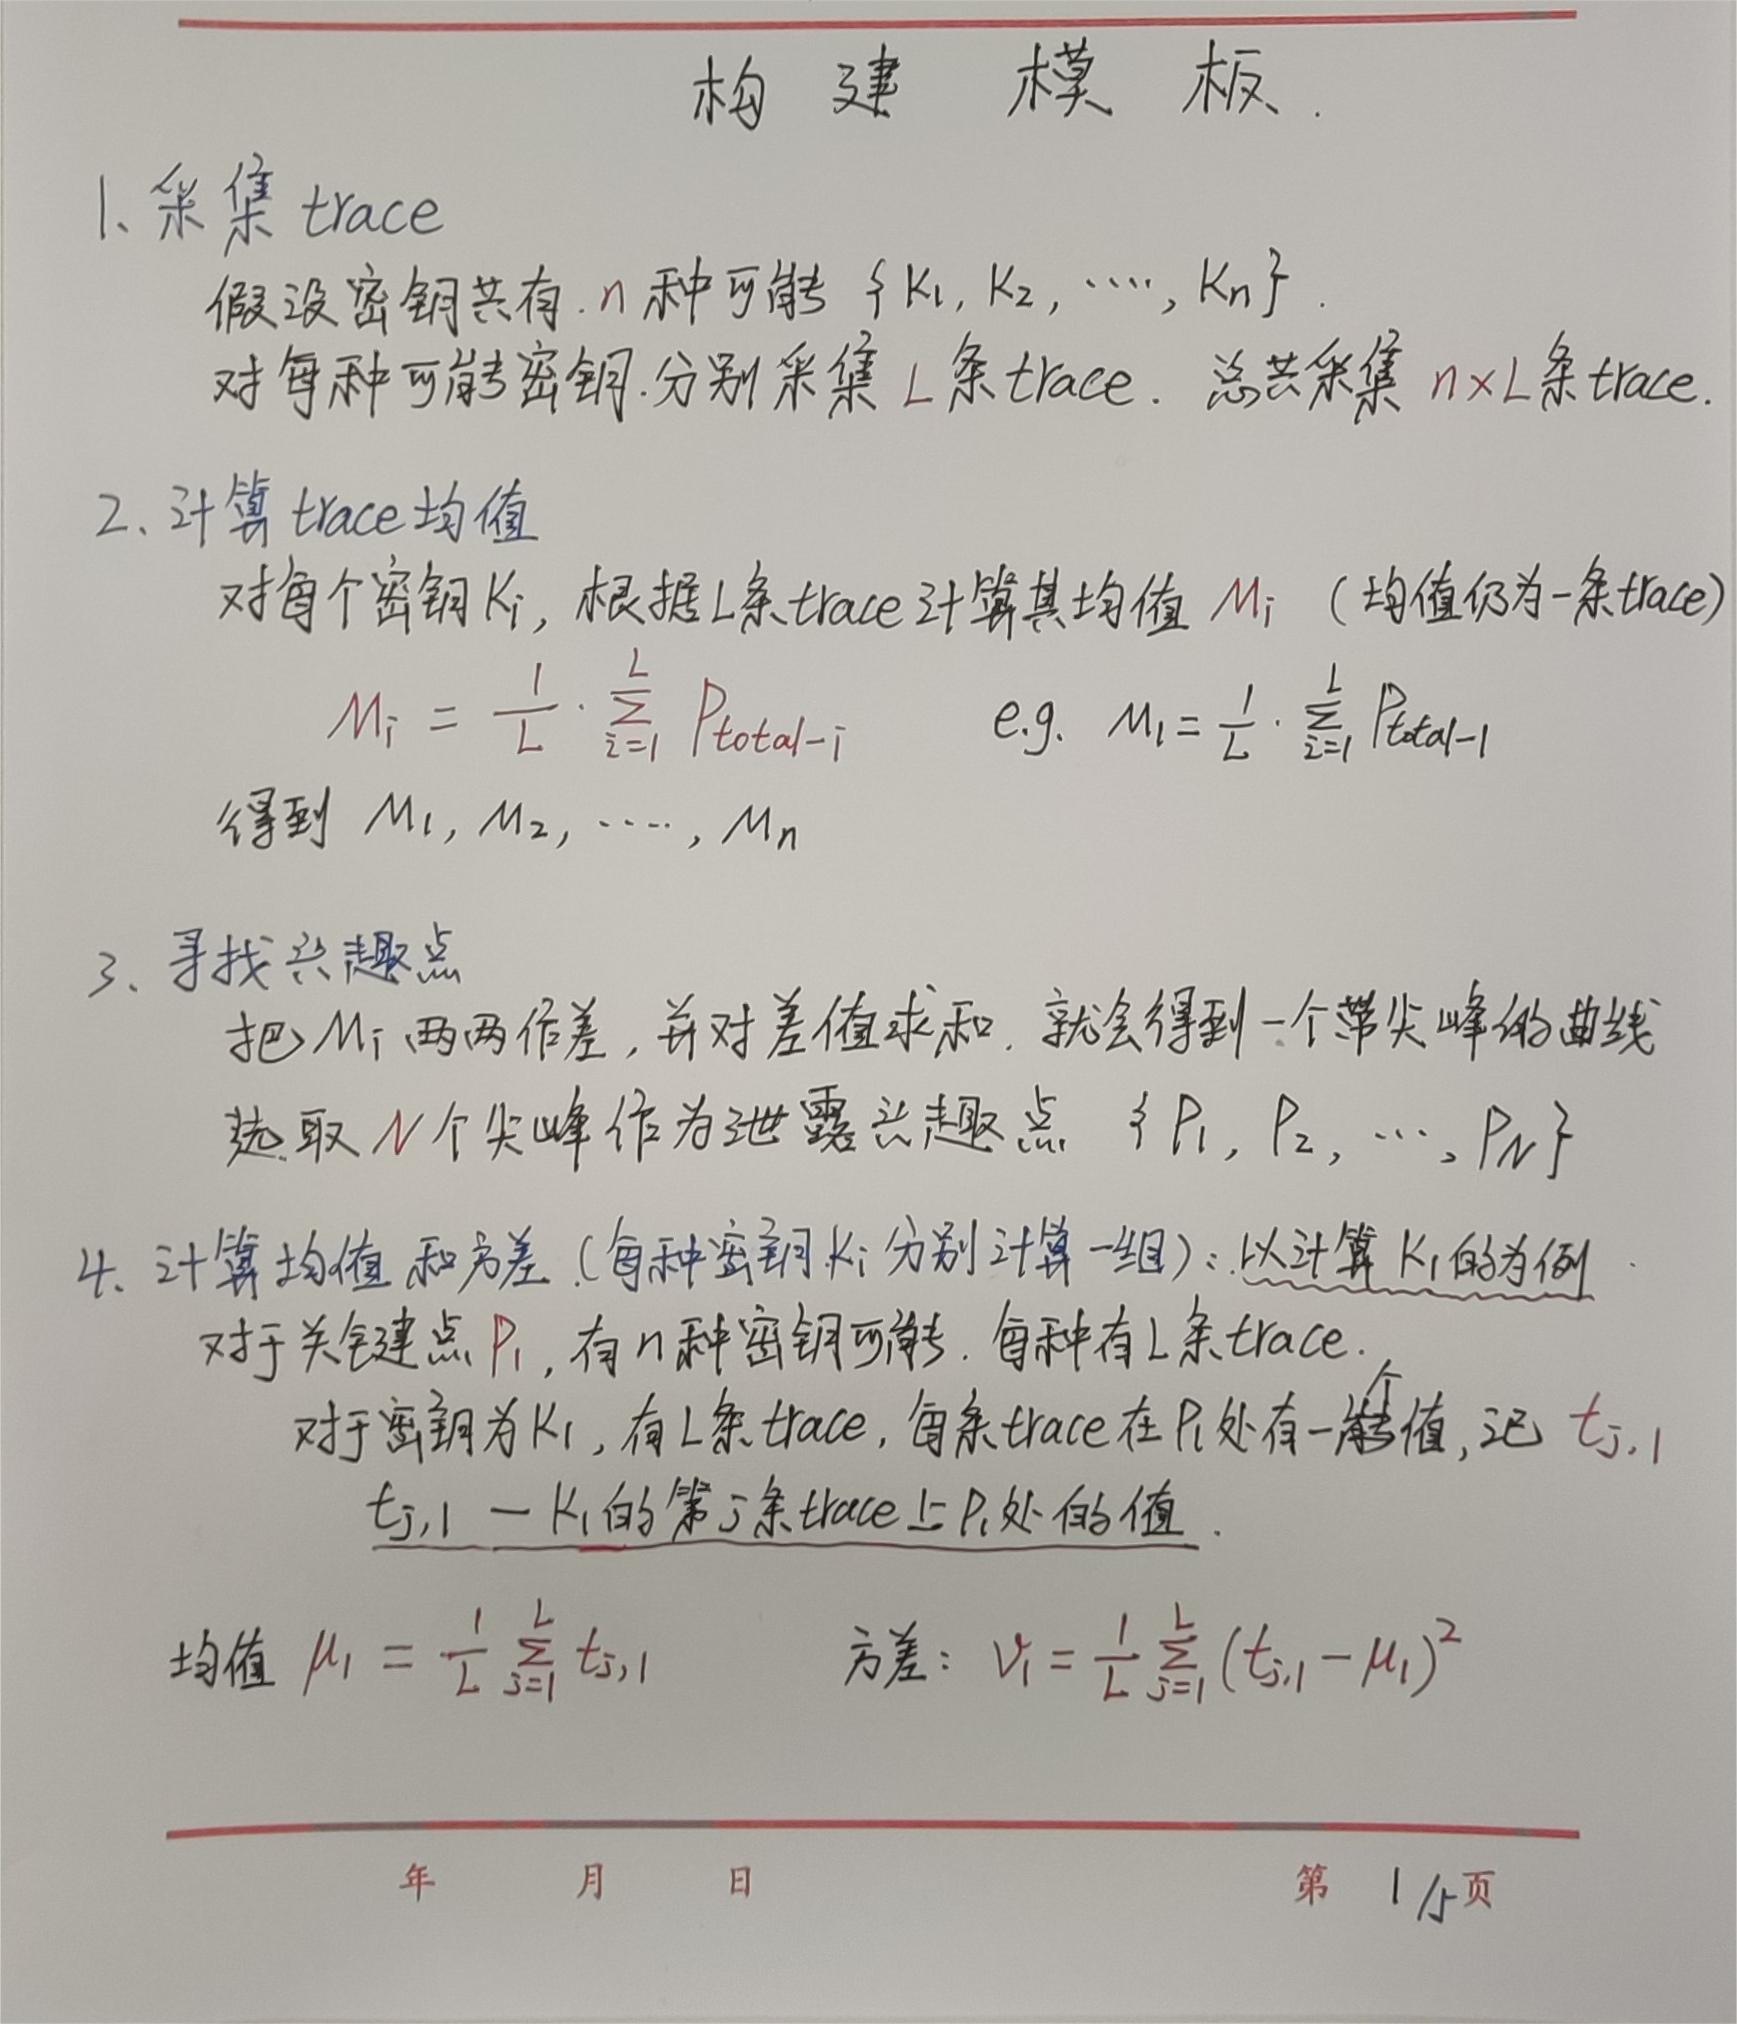 构建模板.
1、采集trace
假设密钥共有.n种可能{K1, K2, ……, Kn}.
对每种可能密钥.分别采集L条trace. 总共采集n×L条trace.
2、计算trace均值
对每个密钥Ki, 根据L条trace计算其均值 Mi (均值仍为一条trace)
Mi = 1/L · Σ_{i=1}^{L} Ptotal-i e.g. M1 = 1/L · Σ_{i=1}^{L} Ptotal-1
得到 M1, M2, ……, Mn
3、寻找兴趣点
把Mi两两作差, 并对差值求和. 就会得到一个带尖峰的曲线
选取N个尖峰作为泄露兴趣点 {P1, P2, …, PN}
4、计算均值和方差.(每种密钥Ki分别计算一组):以计算K1的为例.
对于关键点P1, 有n种密钥可能. 每种有L条trace.
对于密钥为K1, 有L条trace, 每条trace在P1处有一个值, 记 tj,1
tj,1 — K1的第j条trace上P1处的值.
均值 μ1 = 1/L Σ_{j=1}^{L} tj,1 方差: ν1 = 1/L Σ_{j=1}^{L} (tj,1 - μ1)²
年 月 日 第 1/5 页